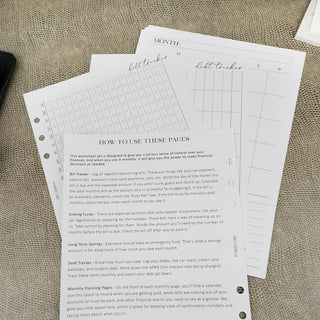 MONTH:
debt tracker
debt tracker
HOW TO USE THESE PAGES
This worksheet set is designed to give you a serious sense of control over your
finances, and when you use it monthly, it will give you the power to make financial
decisions as needed.
Bill Tracker - Log all regular/reoccurring bills. These are things like your car payment,
electric bill, minimum credit card payments, rent, etc. Write the day of the month this
bill is due and the expected amount. If you aren't sure, guess and round up. Calculate
the total monthly bills at the bottom (this is so helpful for budgeting!). If the bill is
an automatic payment, check the "Auto Pay" box. If the bill must be manually paid
monthly, check the box under each month as you pay it.
Sinking Funds - There are expenses and bills that only happen occasionally, like your
car registration or shopping for the holidays. These bills have a way of sneaking up on
us. Take control by planning for them. Divide the amount you'll need by the number of
months before the bill is due. Check the box off after you've paid it.
Long Term Savings - Everyone should have an emergency fund. That's what a savings
account is for. Keep track of how much you save each month.
Debt Tracker - Know how much you owe. Log your debts, like car loans, credit card
balances, and student debt. Write down the APR% (the interest rate being charged).
Track these items monthly and watch your debt go down.
Monthly Planning Pages - On the front of each monthly page, you'll find a calendar.
Use this space to record when you are getting paid, when bills are coming out of your
accounts or must be paid, and other financial events you need to see at-a-glance. We
gave you note space here, which is great for keeping track of confirmation numbers and
taking notes about what occurs.